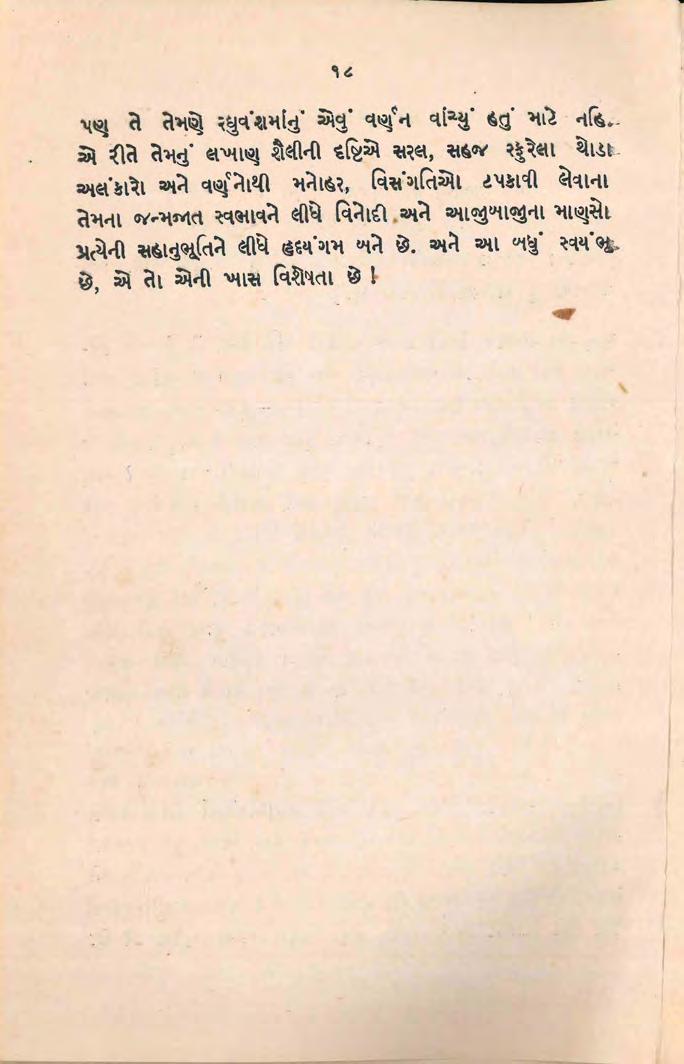 ૧૮
પણ તે તેમણે રઘુવંશમાંનું એવું વર્ણન વાંચ્યું હતું માટે નહિ.
એ રીતે તેમનું લખાણ શૈલીની દૃષ્ટિએ સરલ, સહજ સ્ફુરેલા થોડા
અલંકારો અને વર્ણનોથી મનોહર, વિસંગતિઓ ટપકાવી લેવાના
તેમના જન્મજાત સ્વભાવને લીધે વિનોદી અને આજુબાજુના માણસો
પ્રત્યેની સહાનુભૂતિને લીધે હૃદયંગમ બને છે. અને આ બધું સ્વયંભૂ
છે, એ તો એની ખાસ વિશેષતા છે !